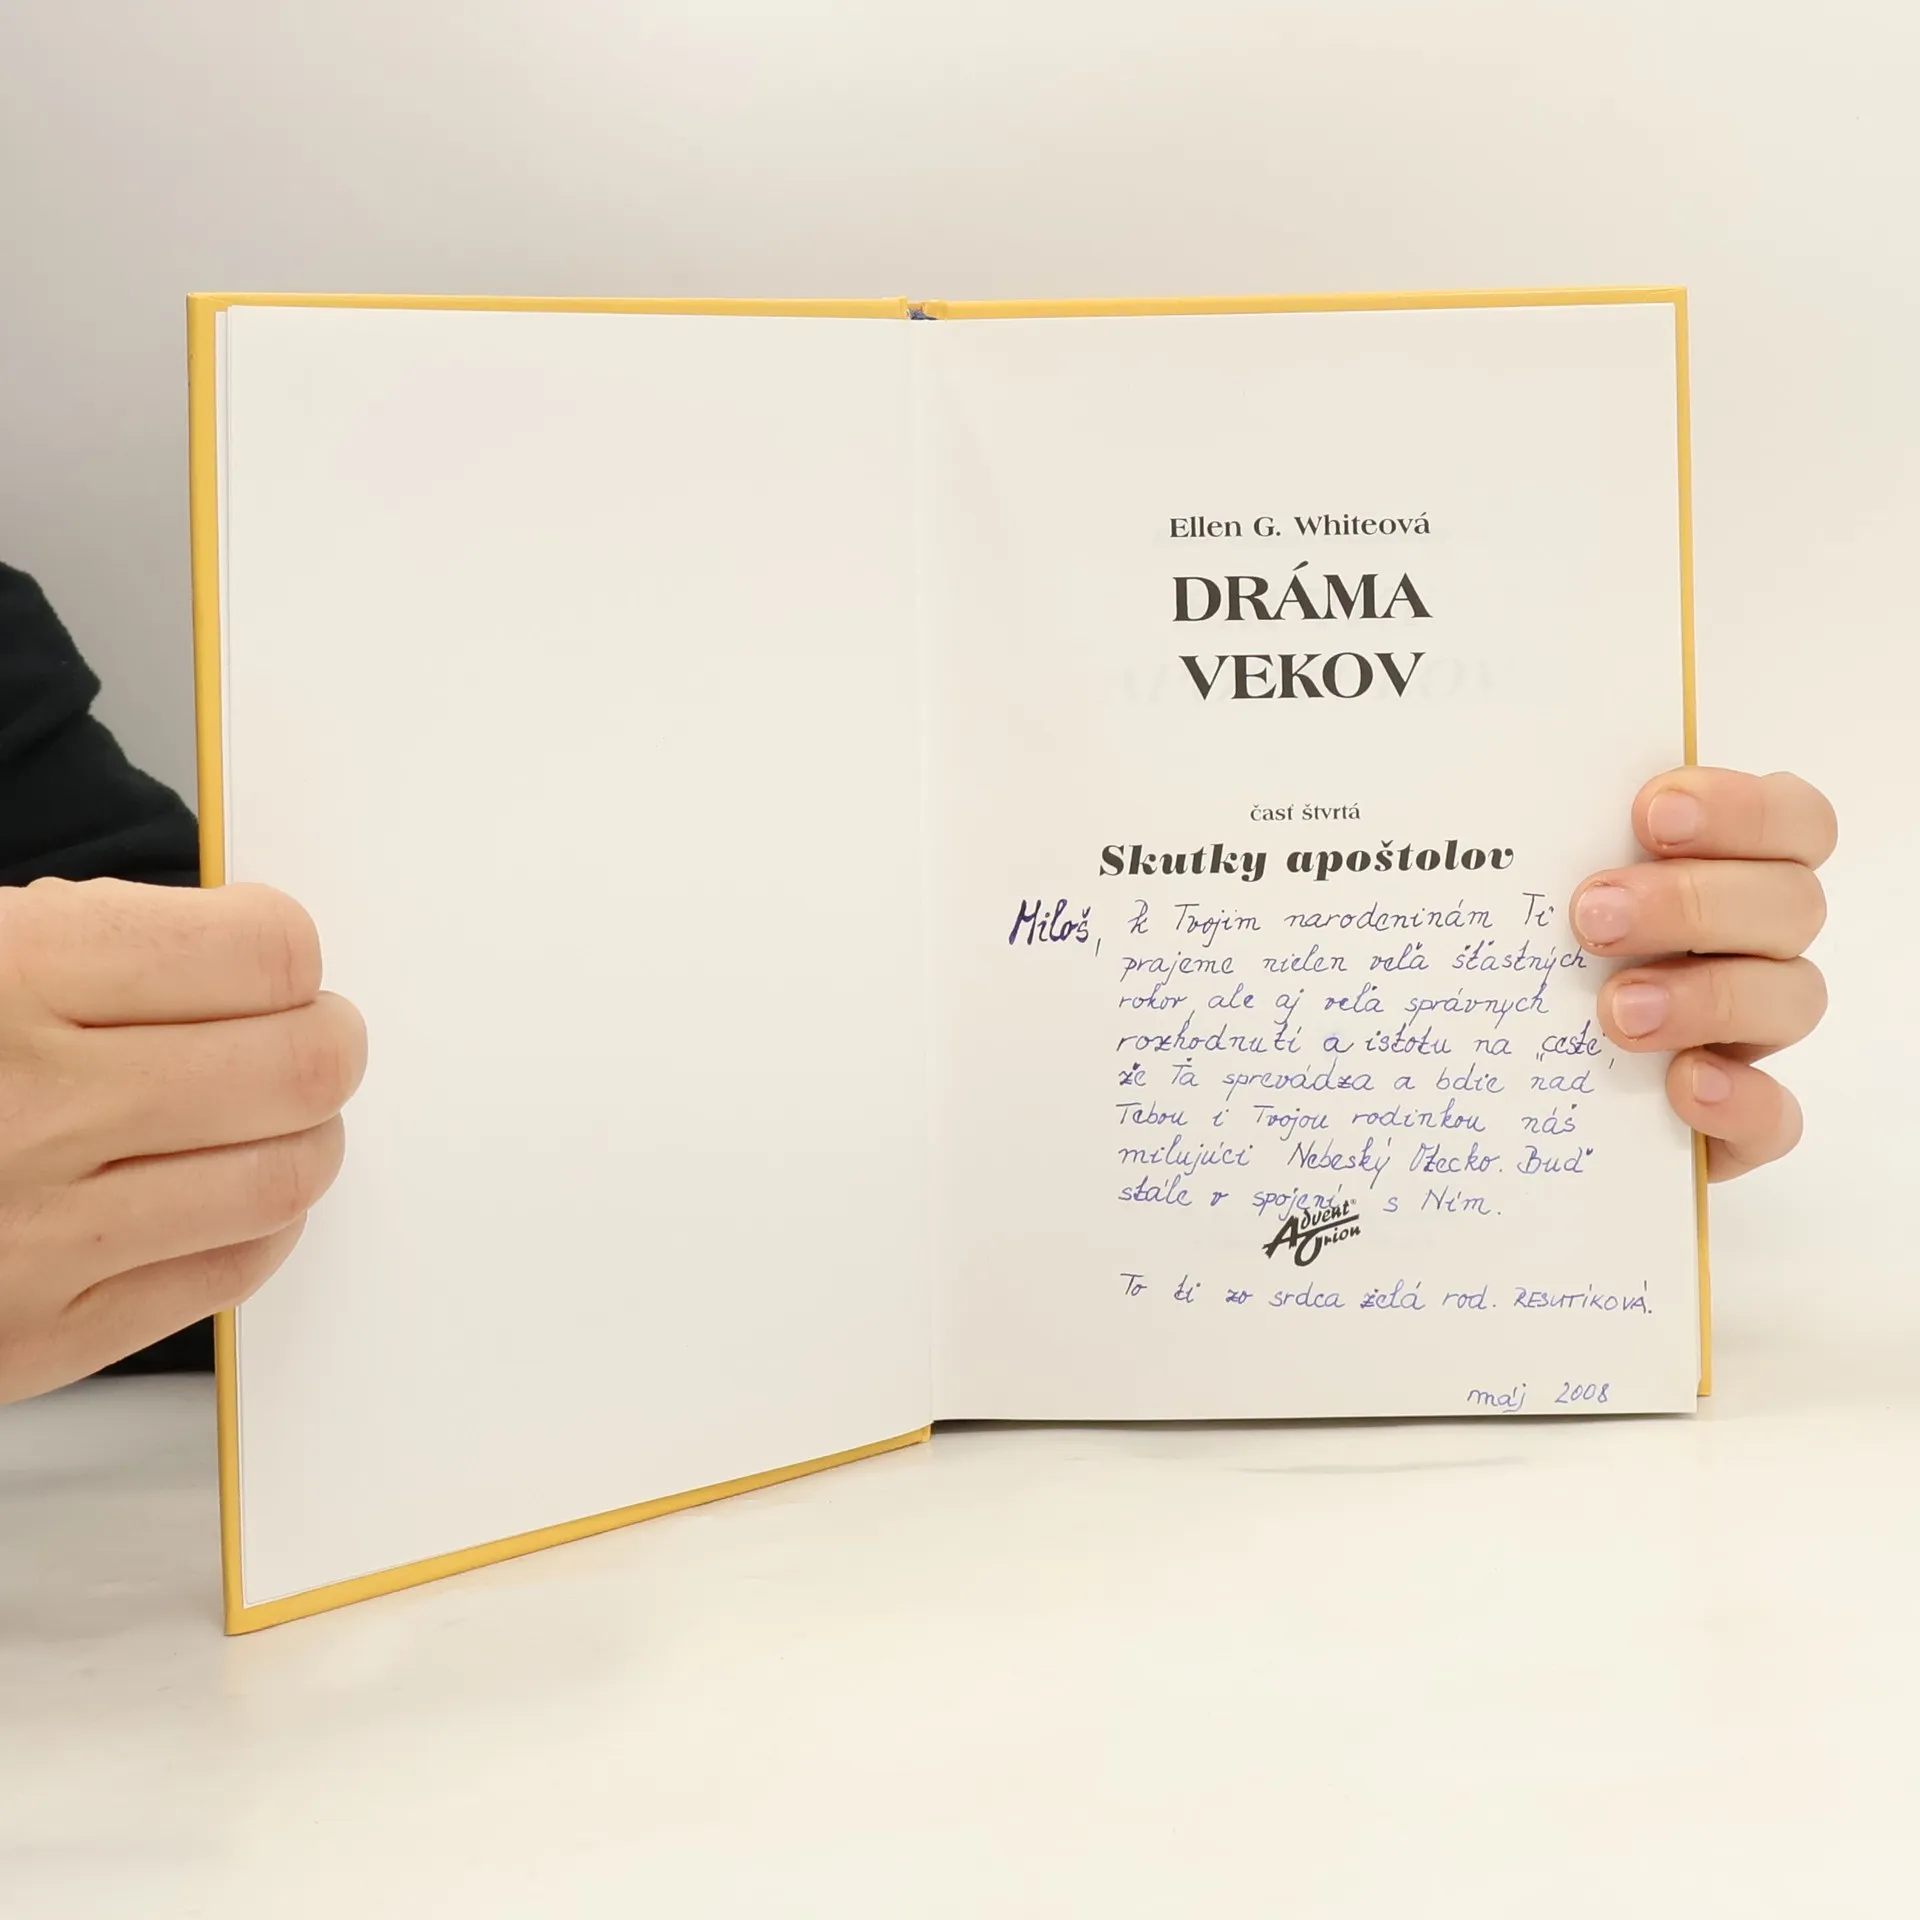 Ellen G. Whiteová
DRÁMA
VEKOV
časť štvrtá
Skutky apoštolov
Miloš, k Tvojim narodeninám Ti
prajeme nielen veľa šťastných
rokov, ale aj veľa správnych
rozhodnutí a istotu na „ceste",
že Ťa sprevádza a bdie nad
Tebou i Tvojou rodinkou náš
milujúci Nebeský Otecko. Buď
stále v spojení s Ním.
Advent Orion
To ti zo srdca želá rod. REŠUTÍKOVÁ.
máj 2008